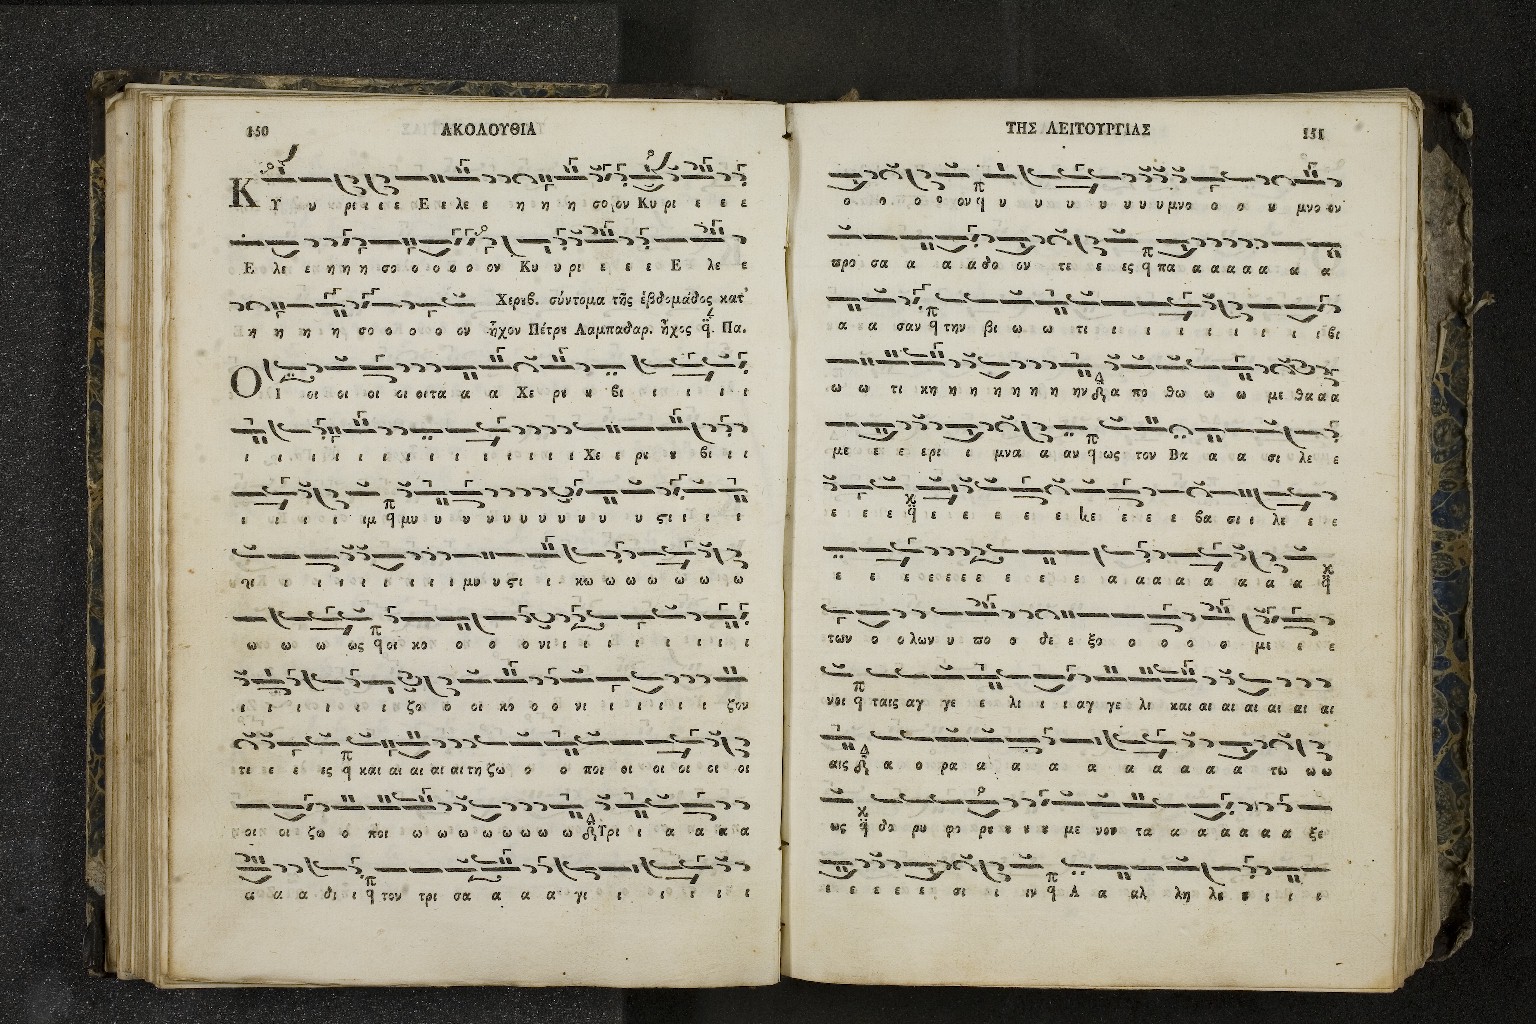 150
ΑΚΟΛΟΥΘΙΑ
Κ Υ υ ρι ε ε ε Ε ε λε ε η η η σο ον Κυ ρι ε ε ε
Ε λε ε η η η σο ο ο ο ο ον Κυ υ ρι ε ε ε Ε λε ε
Χερυβ. σύντομα τῆς ἑβδομάδος κατ'
η η η η σο ο ο ο ον ἦχον Πέτρυ Λαμπαδαρ. ἦχος ᾳ. Πα.
Ο Ι οι οι οι οι οι τα α α Χε ρυ υ βι ι ι ι ι
ι ι ι ι ι ι ι ι ι ι ι ι ι Χε ε ρυ υ βι ι ι
ι ι ι ι ιμ μυ υ υ υ υ υ υ υ υ υ ςι ι ι ι
ι ι ι ι ι ι ι ι μυ υ ςι ι κω ω ω ω ω ω ω
ω ω ω ως οι κο ο ο ο νι ι ι ι ι ι ι ι ι
ι ι ι ι ι ι ζο ο οι κο ο ο νι ι ι ι ι ι ζον
τε ε ε ες και αι αι αι αι τη ζω ο ο ποι οι οι οι οι οι
οι οι ζω ο ποι ω ω ω ω ω ω ω ω Τρι ι α α α α
α α α δι ι τον τρι σα α α α γι ι ι ι ι ι
ΤΗΣ ΛΕΙΤΟΥΡΓΙΑΣ
151
ο ο ο ο ον υ υ υ υ υ υ υ υμνο ο ο υ μνο ον
προ σα α α αδο ον τε ε ες πα α α α α α α
α α σαν την βι ω ω τι ι ι ι ι ι ι ι ι βι
ω ω τι κη η η η η η η ην α πο θω ω ω με θα α α
με ε ε ερι ι μνα α αν ως τον Βα α α σι λε ε
ε ε ε ε ε ε ε ε με ε ε ε βα σι ι λε ε ε
ε ε ε ε ε ε ε ε ε ε ε α α α α α α α α α
των ο ο λων υ πο ο δε ε ξο ο ο ο ο με ε ε
νοι ταις αγ γε ε λι ι ι αγ γε λι και αι αι αι αι αι αι αι
αις α ο ρα α α α α α α α α α τω ω ω
ως δο ρυ φο ρυ υ υ υ με νον τα α α α α α α ξε
ε ε ε ε ε σι ι ιν Α α αλ λη λυ υ ι ι ι